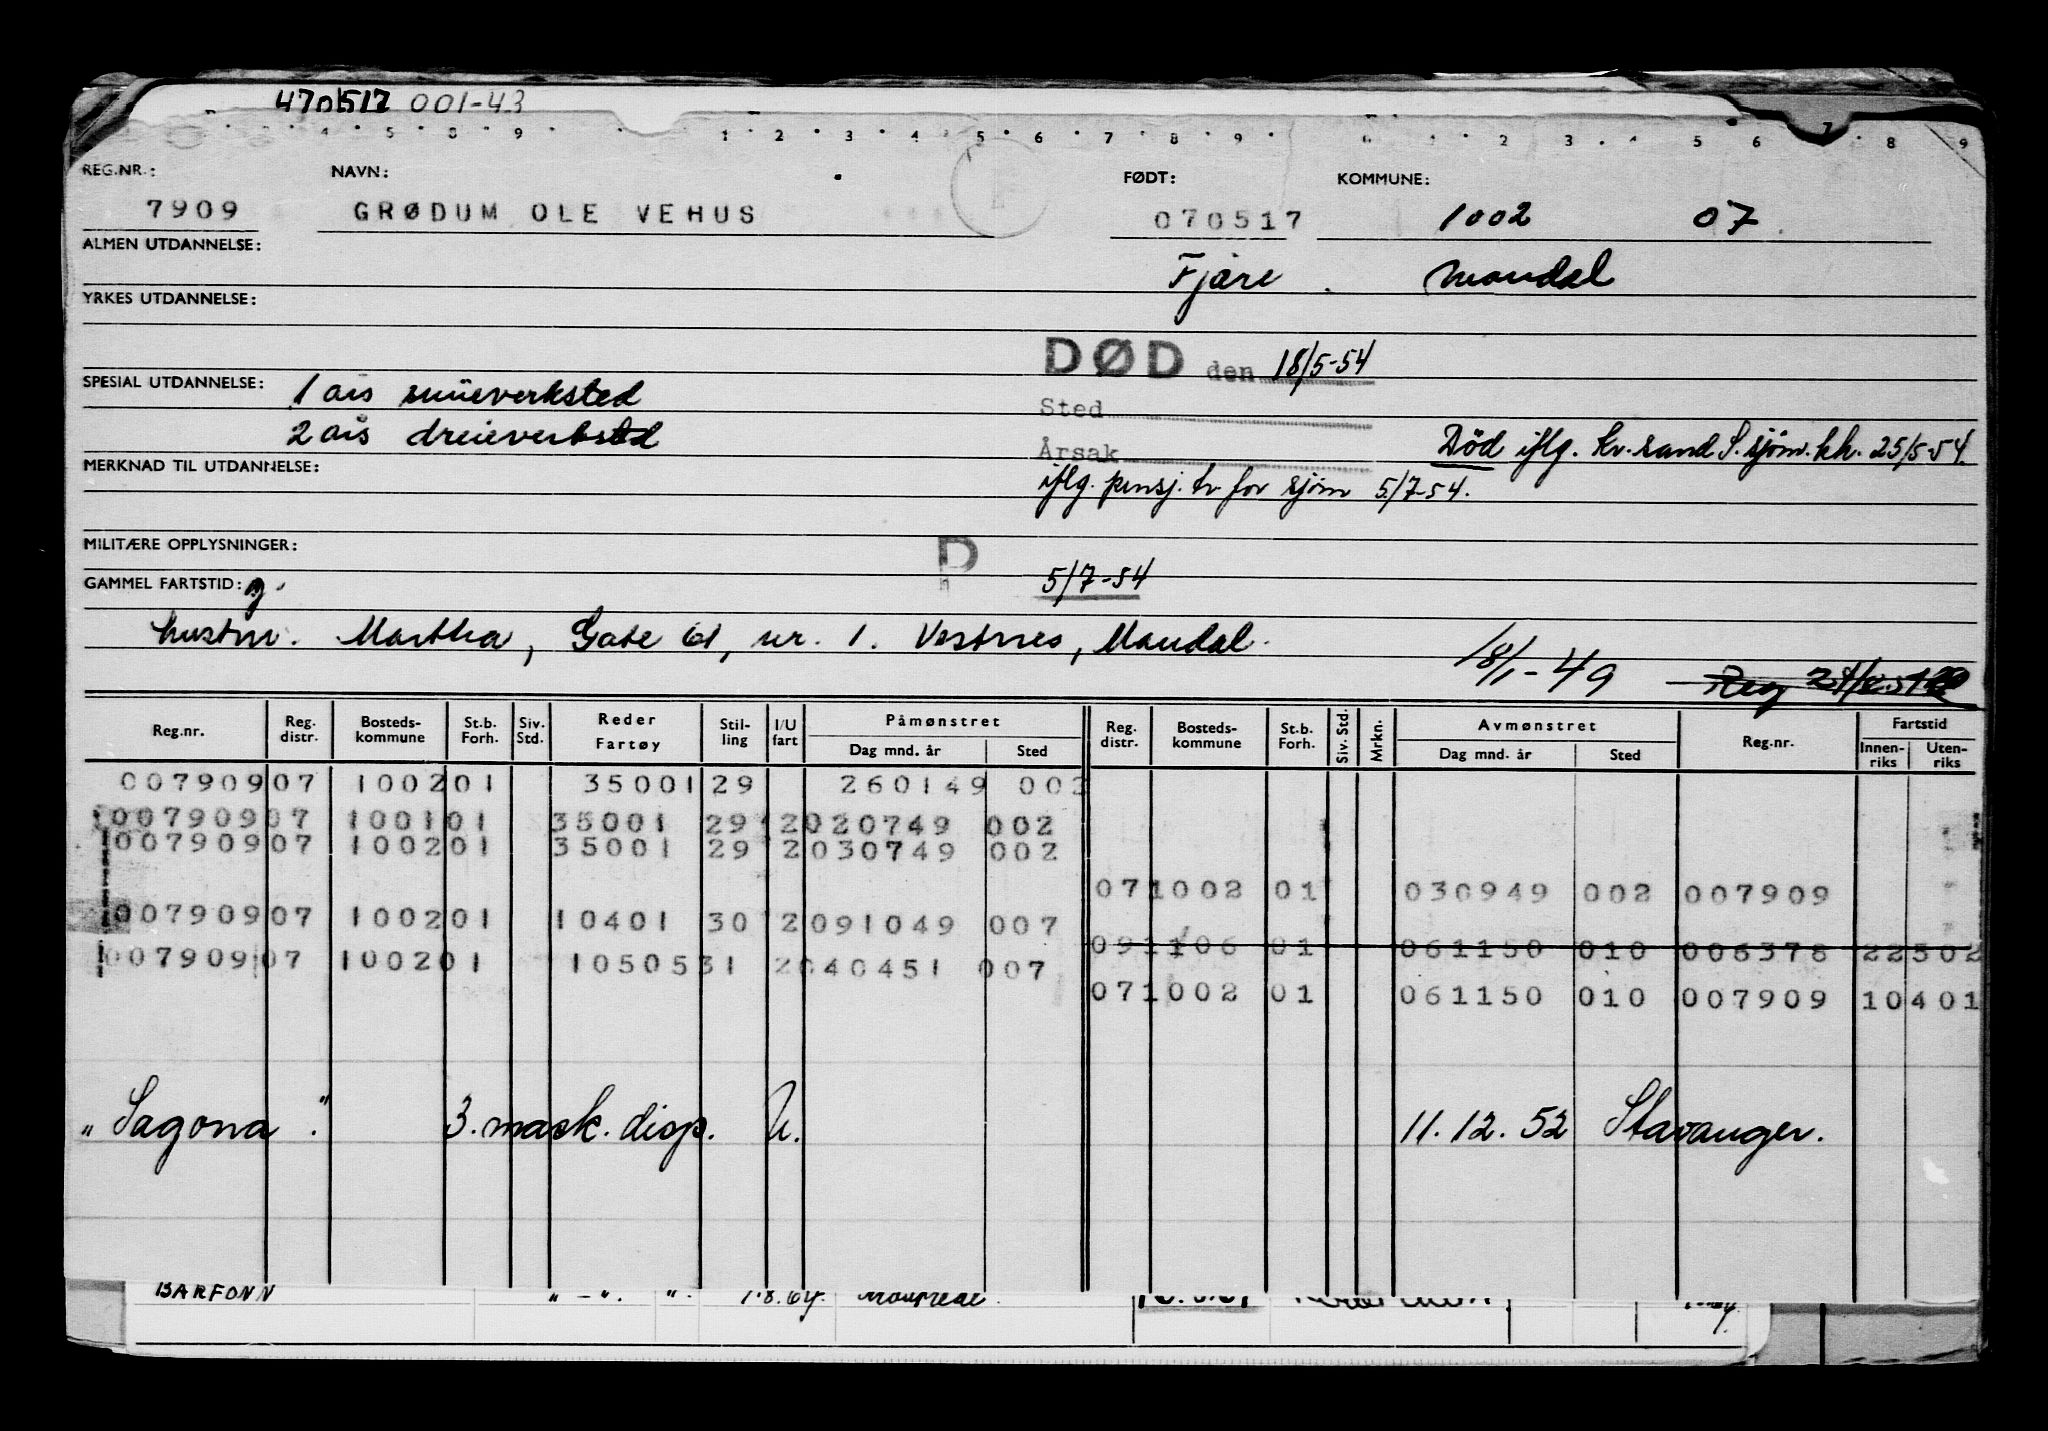 470517 001-43
REG.NR.: NAVN: FØDT: KOMMUNE:
7909 GRØDUM OLE VEHUS 070517 1002 07
ALMEN UTDANNELSE: Fjære Mandal
YRKES UTDANNELSE:
DØD den 18/5-54
SPESIAL UTDANNELSE: 1 års smieverksted
Sted
2 års dreieverksted
Årsak Død iflg. Kr.sand S. sjøm. kk. 25/5-54.
MERKNAD TIL UTDANNELSE:
iflg. pensj. tr for sjøm 5/7-54.
MILITÆRE OPPLYSNINGER: P
GAMMEL FARTSTID: 5/7-54
hustru. Martha, Gate 61, nr. 1. Vestnes, Mandal.
18/1-49 Reg
Reg.nr. Reg. distr. Bosteds- kommune St.b. Forh. Siv. Std. Reder Fartøy Stil- ling I/U fart Påmønstret Dag mnd. år Sted Reg. distr. Bosteds- kommune St.b. Forh. Siv. Std. Mrkn. Avmønstret Dag mnd. år Sted Reg.nr. Fartstid Innen- riks Uten- riks
007909 07 1002 01 35001 29 260149 002
007909 07 1001 01 35001 29 2 020749 002
007909 07 1002 01 35001 29 2 030749 002
07 1002 01 030949 002 007909
007909 07 1002 01 10401 30 2 091049 007
09 1106 01 061150 010 006378 22502
007909 07 1002 01 10505 31 2 040451 007
07 1002 01 061150 010 007909 10401
"Sagona". 3. mask. disp. U. 11.12.52 Stavanger.
BARFONN " - ". ". 1.8.64.